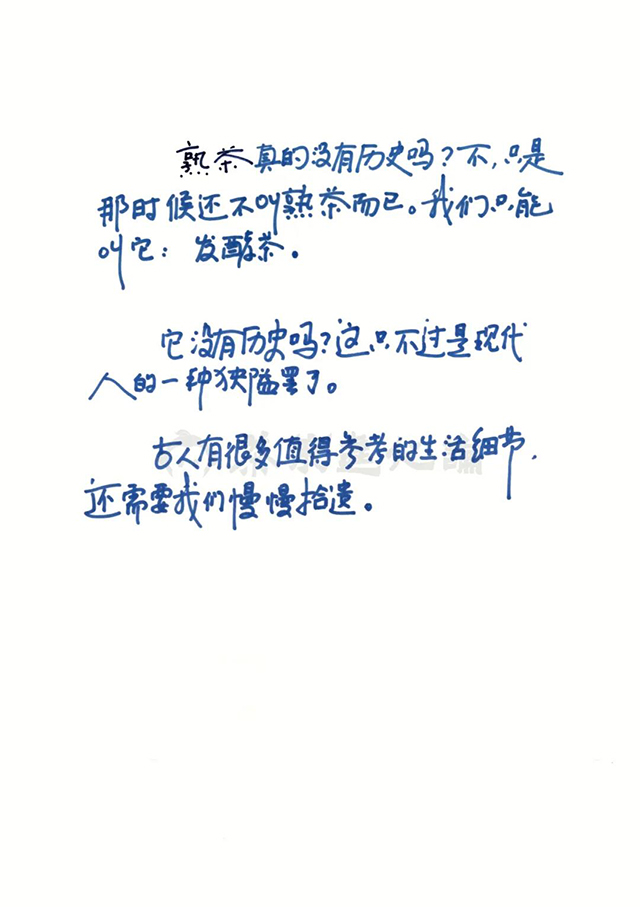 熟茶真的没有历史吗？不，只是
那时候还不叫熟茶而已。我们只能
叫它：发酵茶。
它没有历史吗？这只不过是现代
人的一种狭隘罢了。
古人有很多值得参考的生活细节，
还需要我们慢慢拾遗。